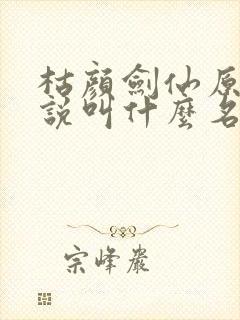 枯顏劍仙原
說叫什麼名
宗峰嚴